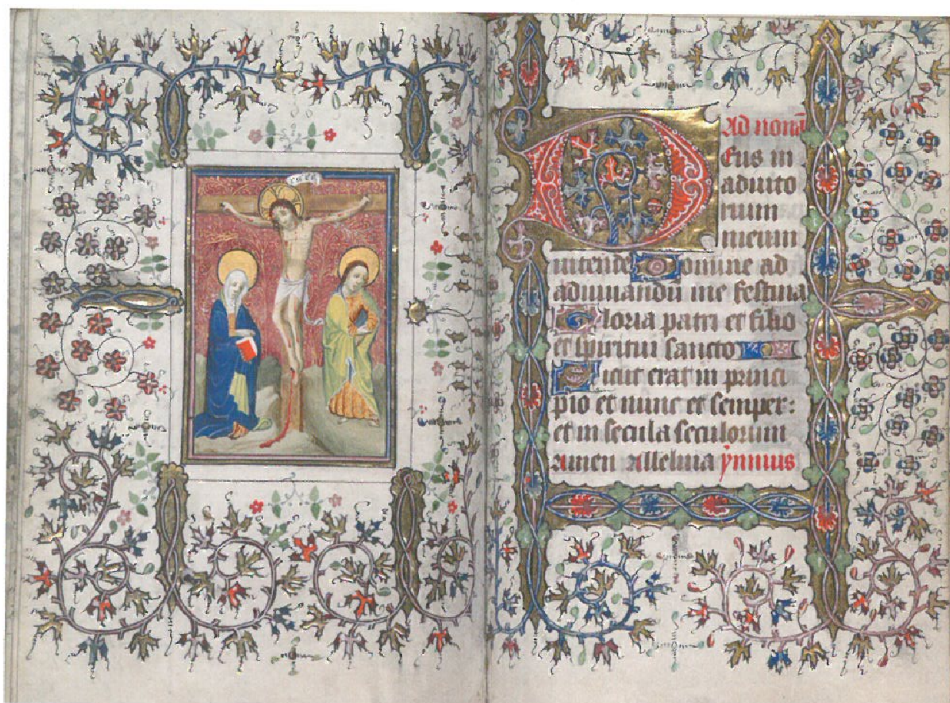 Ad nonā
Deus in
adiuto
rium
meum
intende Domine ad
adiuuandū me festina
Gloria patri et filio
et spiritui sancto
Sicut erat in princi
pio et nunc et semper:
et in secula seculorum
Amen Alleluia ymnus